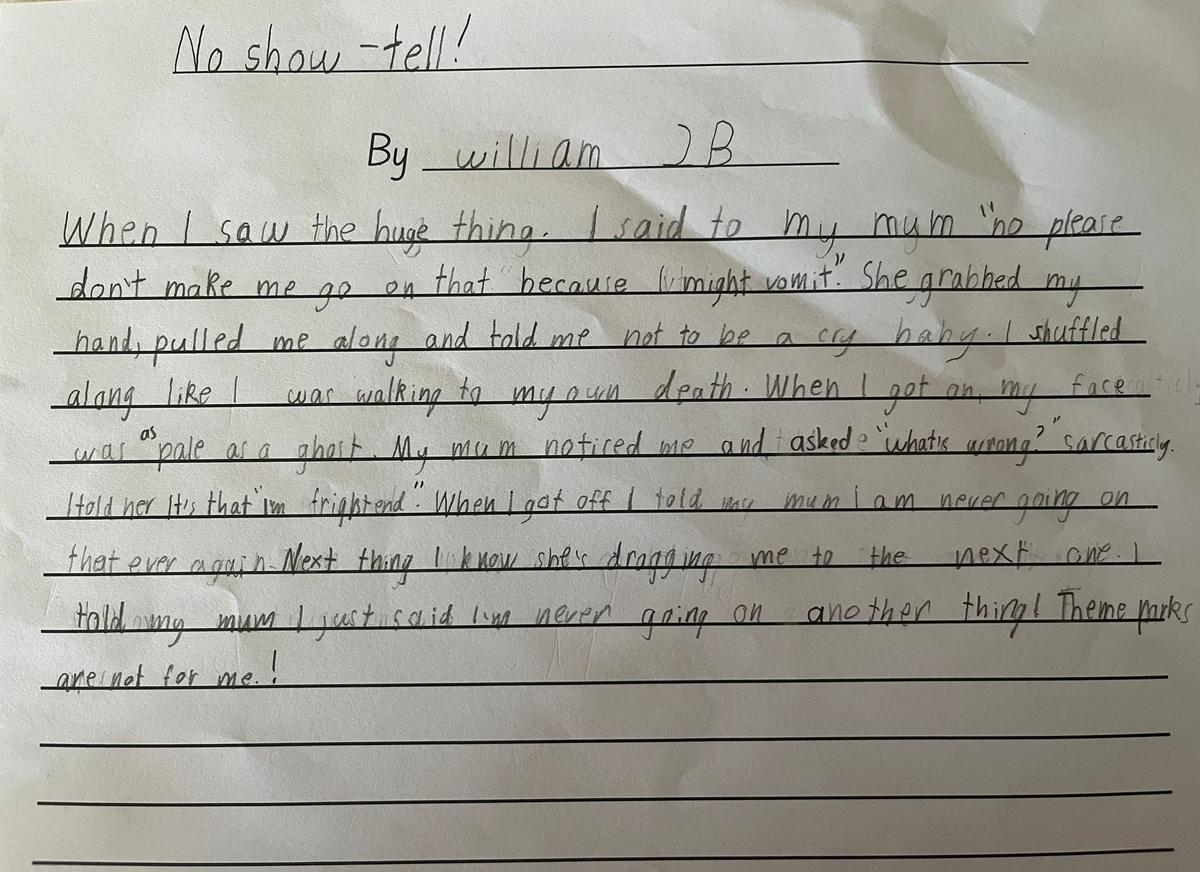 No show -tell!
By william 2B
When I saw the huge thing. I said to my mum "no please
don't make me go on that because I might vomit". She grabbed my
hand, pulled me along and told me not to be a cry baby. I shuffled
along like I was walking to my own death. When I got on, my face
was as pale as a ghost. My mum noticed me and asked "what's wrong?" sarcasticly.
I told her It's that "im frightend". When I got off I told my mum I am never going on
that ever again. Next thing I know she's dragging me to the next one. I
told my mum I just said I'm never going on another thing! Theme parks
are not for me.!